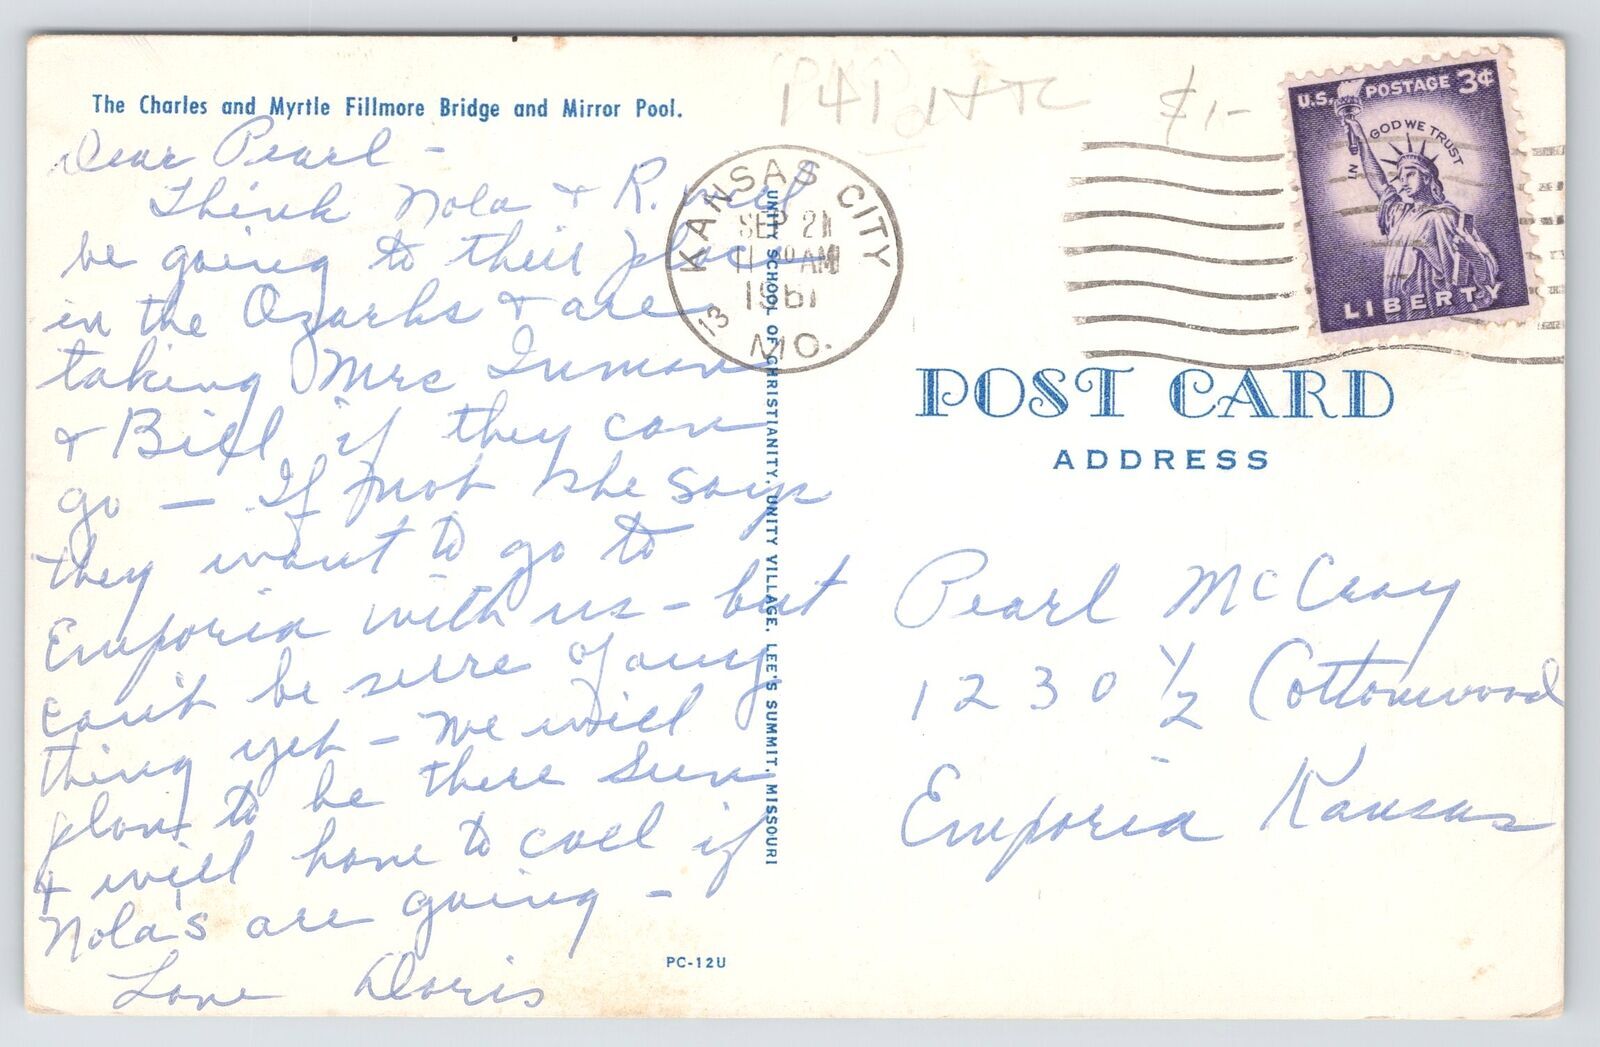 The Charles and Myrtle Fillmore Bridge and Mirror Pool.
Dear Pearl -
Think Nola & R. will
be going to their place
in the Ozarks & are
taking Mrs Inman
& Bill if they can
go — If not she says
they want to go to
Emporia with us - but
can't be sure of any
thing yet - We will
plan to be there Sun
& will have to call if
Nola's are going -
Love Doris
UNITY SCHOOL OF CHRISTIANITY, UNITY VILLAGE, LEE'S SUMMIT, MISSOURI
PC-12U
$1-
KANSAS CITY
SEP 21
AM
1961
13
MO.
U.S. POSTAGE 3¢
IN GOD WE TRUST
LIBERTY
POST CARD
ADDRESS
Pearl McCrary
1230 ½ Cottonwood
Emporia Kansas